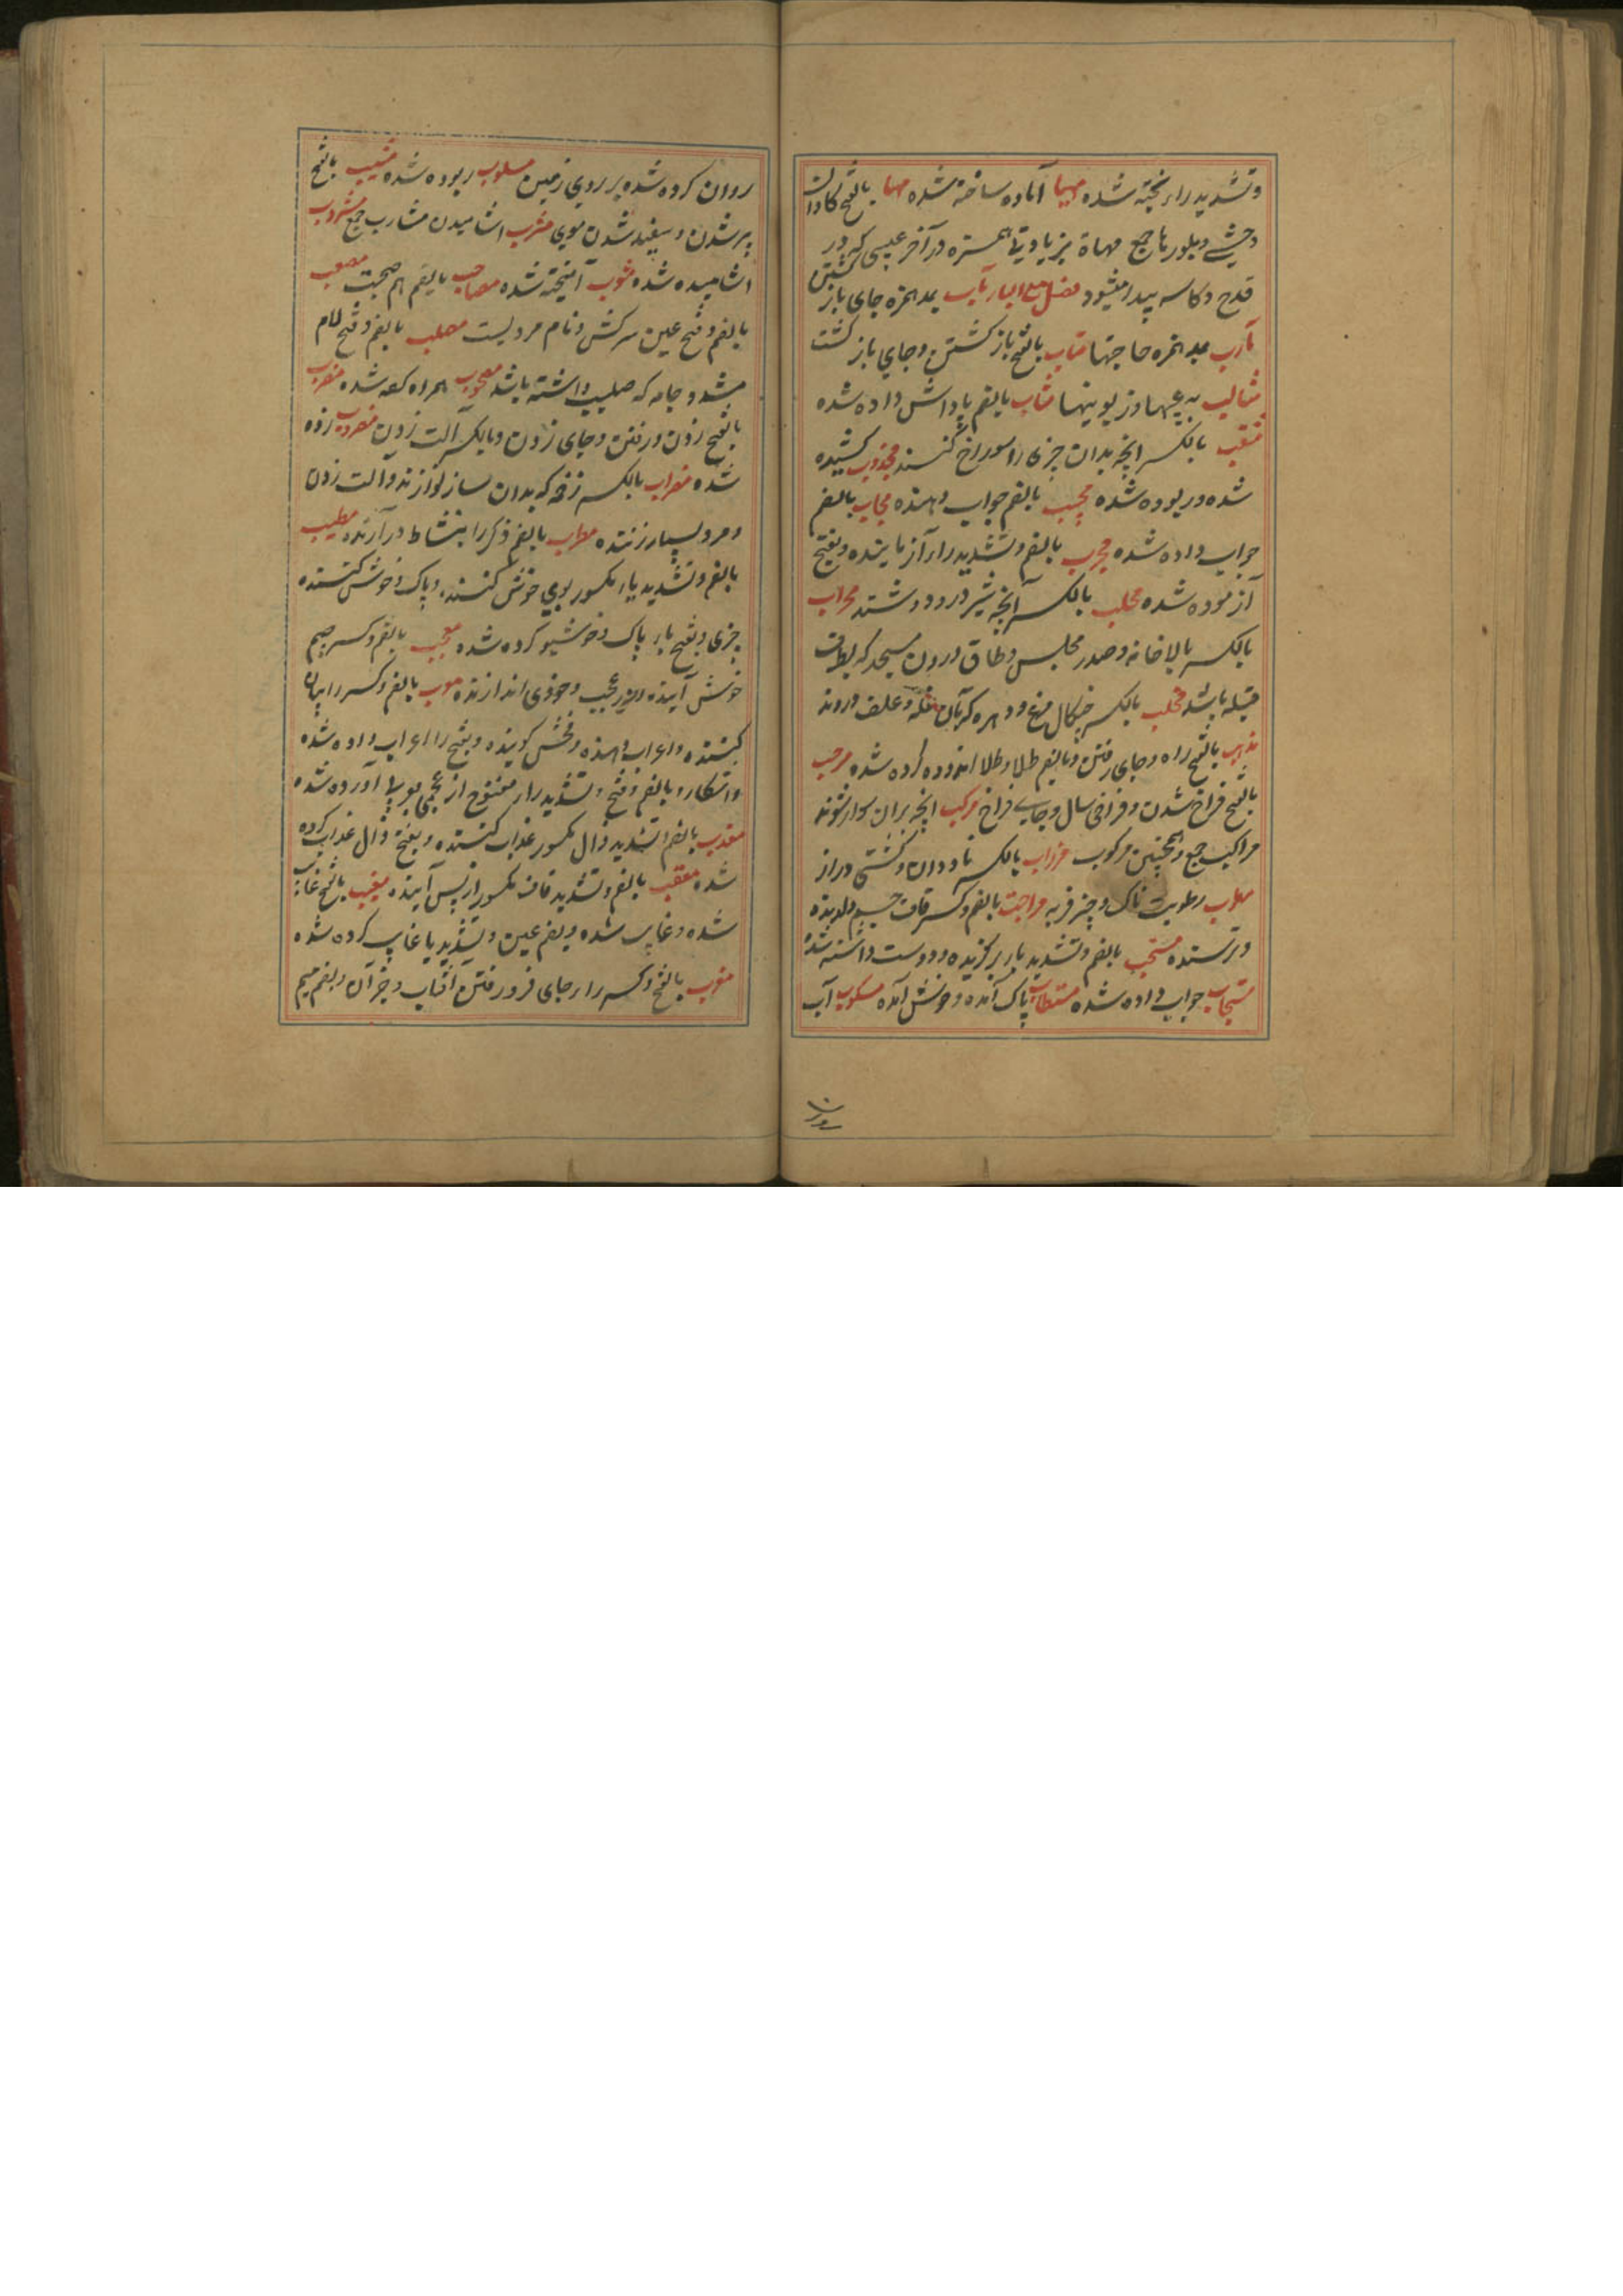 وتشدید راء پخته شده مهیا آماده ساخته شده مها بالفتح کاوان
وحشی و بلورها جمع مهاة بزیادتی همزه در آخر عیبی که در
قدح و کاسه پیدا میشود فصل مع الباء مآب بمد همزه جای باز گشتن
مآرب بمد همزه حاجتها متاب بالفتح باز گشتن و جای باز گشت
مثالب عیبها و زبونیها مثاب بالضم پاداش داده شده
مثقب بالکسر انچه بدان چیزی را سوراخ کنند مجذوب کشیده
شده و ربوده شده مجیب بالضم جواب دهنده مجاب بالضم
جواب داده شده مجرب بالضم وتشدید راء آزماینده وبفتح
آزموده شده محلب بالکسر آنچه شیر درو دوشند محراب
بالکسر بالاخانه و صدر مجلس و طاق درون مسجد که بطرف
قبله باشد مخلب بالکسر چنگال مرغ و دهره که بآن غله و علف دروند
مذهب بالفتح راه و جای رفتن و بالضم طلا و طلا اندوده کرده شده مرحب
بالفتح فراخ شدن و فراخی سال و جای فراخ مرکب انچه بران سوار شوند
مراکب جمع و همچنین مرکوب مرزاب بالکسر ناودان و کشتی دراز
رطوبت ناک و چیز فربه مراقب بالضم وکسر قاف چشم دارنده
و ترسنده مستحب بالضم وتشدید باء برگزیده و دوست داشته شده
مستجاب جواب داده شده مستطاب پاک آمده و خوش آمده مسکوب آب
روان کرده شده بر روی زمین مسلوب ربوده شده مشیب بالفتح
پیر شدن و سفید شدن موی مشرب اشامیدن مشارب جمع مشروب
اشامیده شده مشوب آمیخته شده مصاحب بالضم هم صحبت مصعب
بالضم وفتح عین سرکش و نام مردیست مصلب بالضم وفتح لام
مشدد جامه که صلیب داشته باشد مصحوب همراه کرده شده مضرب
بالفتح زدن و رفتن و جای زدن و بالکسر آلت زدن مضروب زده
شده مضراب بالکسر زخمه که بدان ساز نوازند و آلت زدن
و مرد بسیار زننده مطرب بالضم دیگر را بنشاط در آرنده مطیب
بالضم وتشدید یاء مکسور بوی خوش کننده و پاک و خوش کننده
چیزی و بفتح یاء پاک و خوشبو کرده شده معجب بالضم وکسر جیم
خوش آینده و در عجب و خودی اندازنده معرب بالضم وکسر راء بیان
کننده و اعراب دهنده و فحش گوینده و بفتح راء اعراب داده شده
و اشکارا و بالضم وفتح وتشدید راء مفتوح از عجمی بعربی آورده شده
معذب بالضم وتشدید ذال مکسور عذاب کننده و بفتح ذال عذاب کرده
شده معقب بالضم وتشدید قاف مکسور از پس آینده مغیب بالفتح غائب
شده و غایب شده و بضم عین وتشدید یا غایب کرده شده
مغرب بالفتح وکسر راء جای فرو رفتن آفتاب و جز آن و بضم میم